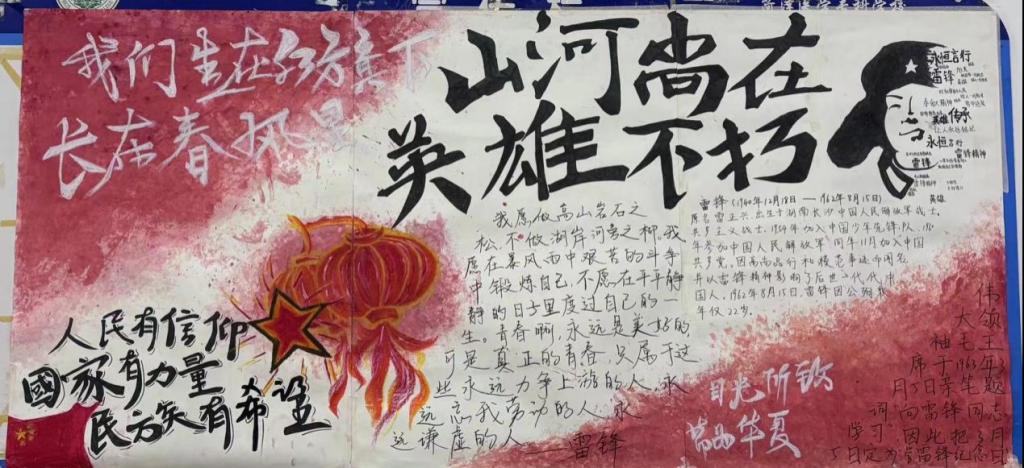 我们生在红旗下
长在春风里
山河尚在
英雄不朽
永恒言行
雷锋
英雄
传承
让人永远铭记
永恒言行
雷锋精神
雷锋
雷锋精神
英雄
雷锋(1940年12月18日—1962年8月15日)
原名雷正兴,出生于湖南长沙中国人民解放军战士,
共产主义战士,1954年加入中国少年先锋队,
年参加中国人民解放军,同年11月加入中国
共产党,因高尚品行和模范事迹而闻名,
并以雷锋精神影响了后世一代代中
国人,1962年8月15日,雷锋因公殉职
年仅22岁。
我愿做高山岩石之
松,不做湖岸河旁之柳,我
愿在暴风雨中艰苦的斗争
中锻炼自己,不愿在平平静
静的日子里度过自己的一
生。青春啊,永远是美好的
可是真正的青春,只属于这
些永远力争上游的人,永
远忘我劳动的人,永
远谦虚的人
——雷锋
人民有信仰
國家有力量
民族有希望
目光所致
皆为华夏
伟
大领
袖毛主
席于1963年3
月5日亲笔题
词"向雷锋同志
学习"因此把3月
5日定为学雷锋纪念日